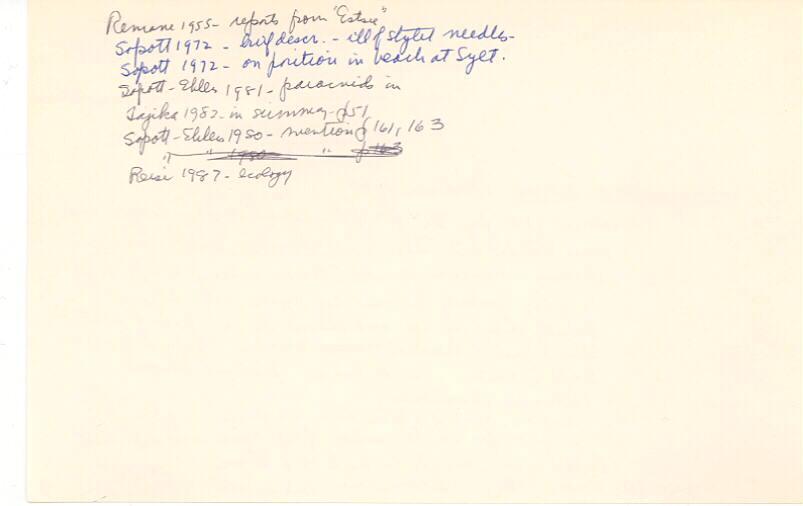 Remane 1955- reports from "Estsee"
Sopott 1972 - brief descr. - ill of stylet needles-
Sopott 1972 - on position in beach at Sylt.
Sopott-Ehlers 1981 - paracnids in
Tajika 1982- in summary- p51
Sopott-Ehlers 1980- mention p 161, 163
" " 1980 " p 163
Reise 1987- ecology